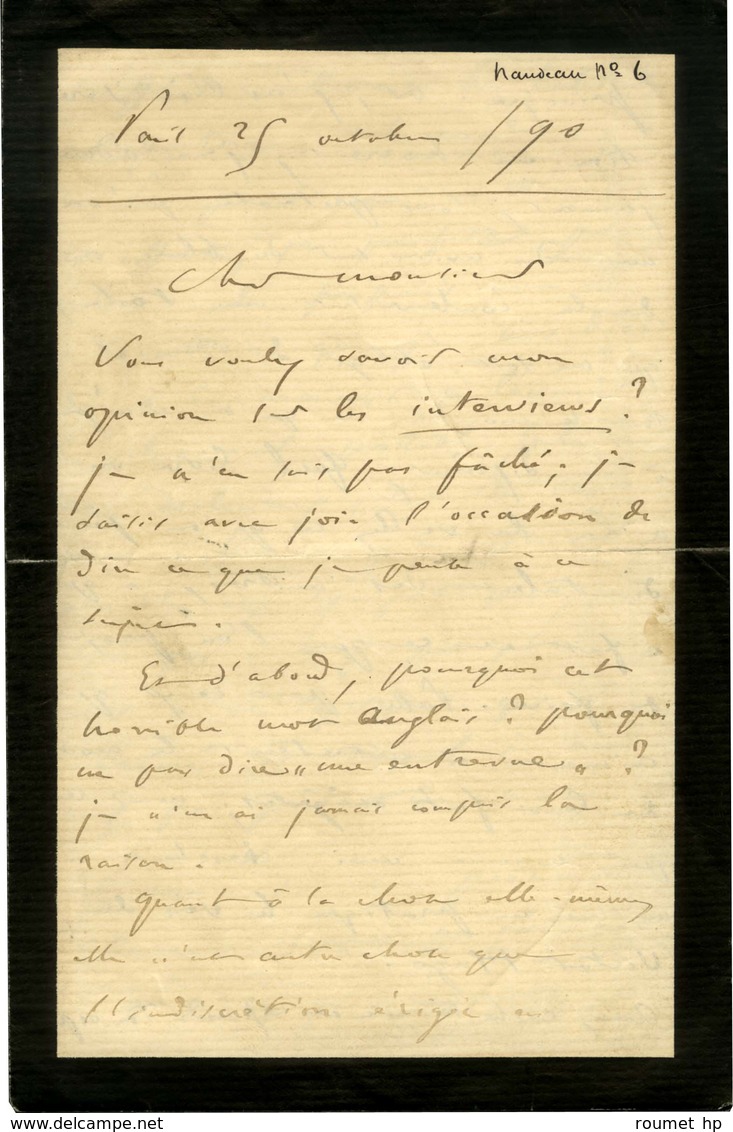 Naudeau No 6
Paris 25 octobre /90
Cher monsieur
Vous voulez savoir mon
opinion sur les interviews ?
je n'en suis pas fâché ; je
saisis avec joie l'occasion de
dire ce que je pense à ce
sujet.
Et d'abord, pourquoi cet
horrible mot anglais ? pourquoi
ne pas dire « une entrevue » ?
je n'en ai jamais compris la
raison.
quant à la chose elle-même,
elle n'est autre chose que
l'indiscrétion érigée en
roumet hp